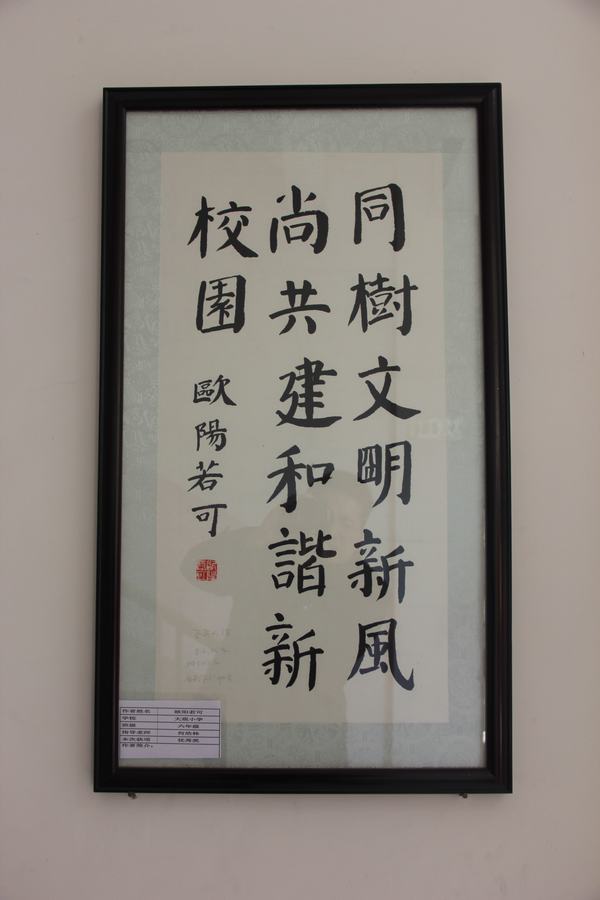 同樹文明新風
尚共建和諧新
校園
歐陽若可
作者姓名 欧阳若可
学校
班级 六年级
指导老师
本次获奖 优秀奖
作者简介：